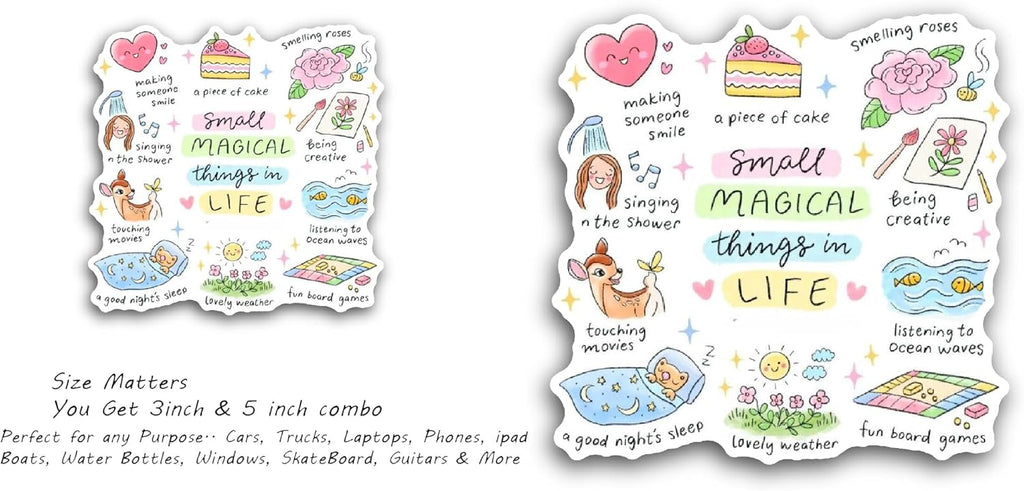 smelling roses
making
someone
smile
a piece of cake
small
MAGICAL
things in
LIFE
singing
n the shower
being
creative
touching
movies
listening to
ocean waves
z z
a good night's sleep
lovely weather
fun board games
Size Matters
You Get 3inch & 5 inch combo
Perfect for any Purpose·· Cars, Trucks, Laptops, Phones, ipad
Boats, Water Bottles, Windows, SkateBoard, Guitars & More
smelling roses
making
someone
smile
a piece of cake
small
MAGICAL
things in
LIFE
singing
n the shower
being
creative
touching
movies
listening to
ocean waves
z z
a good night's sleep
lovely weather
fun board games